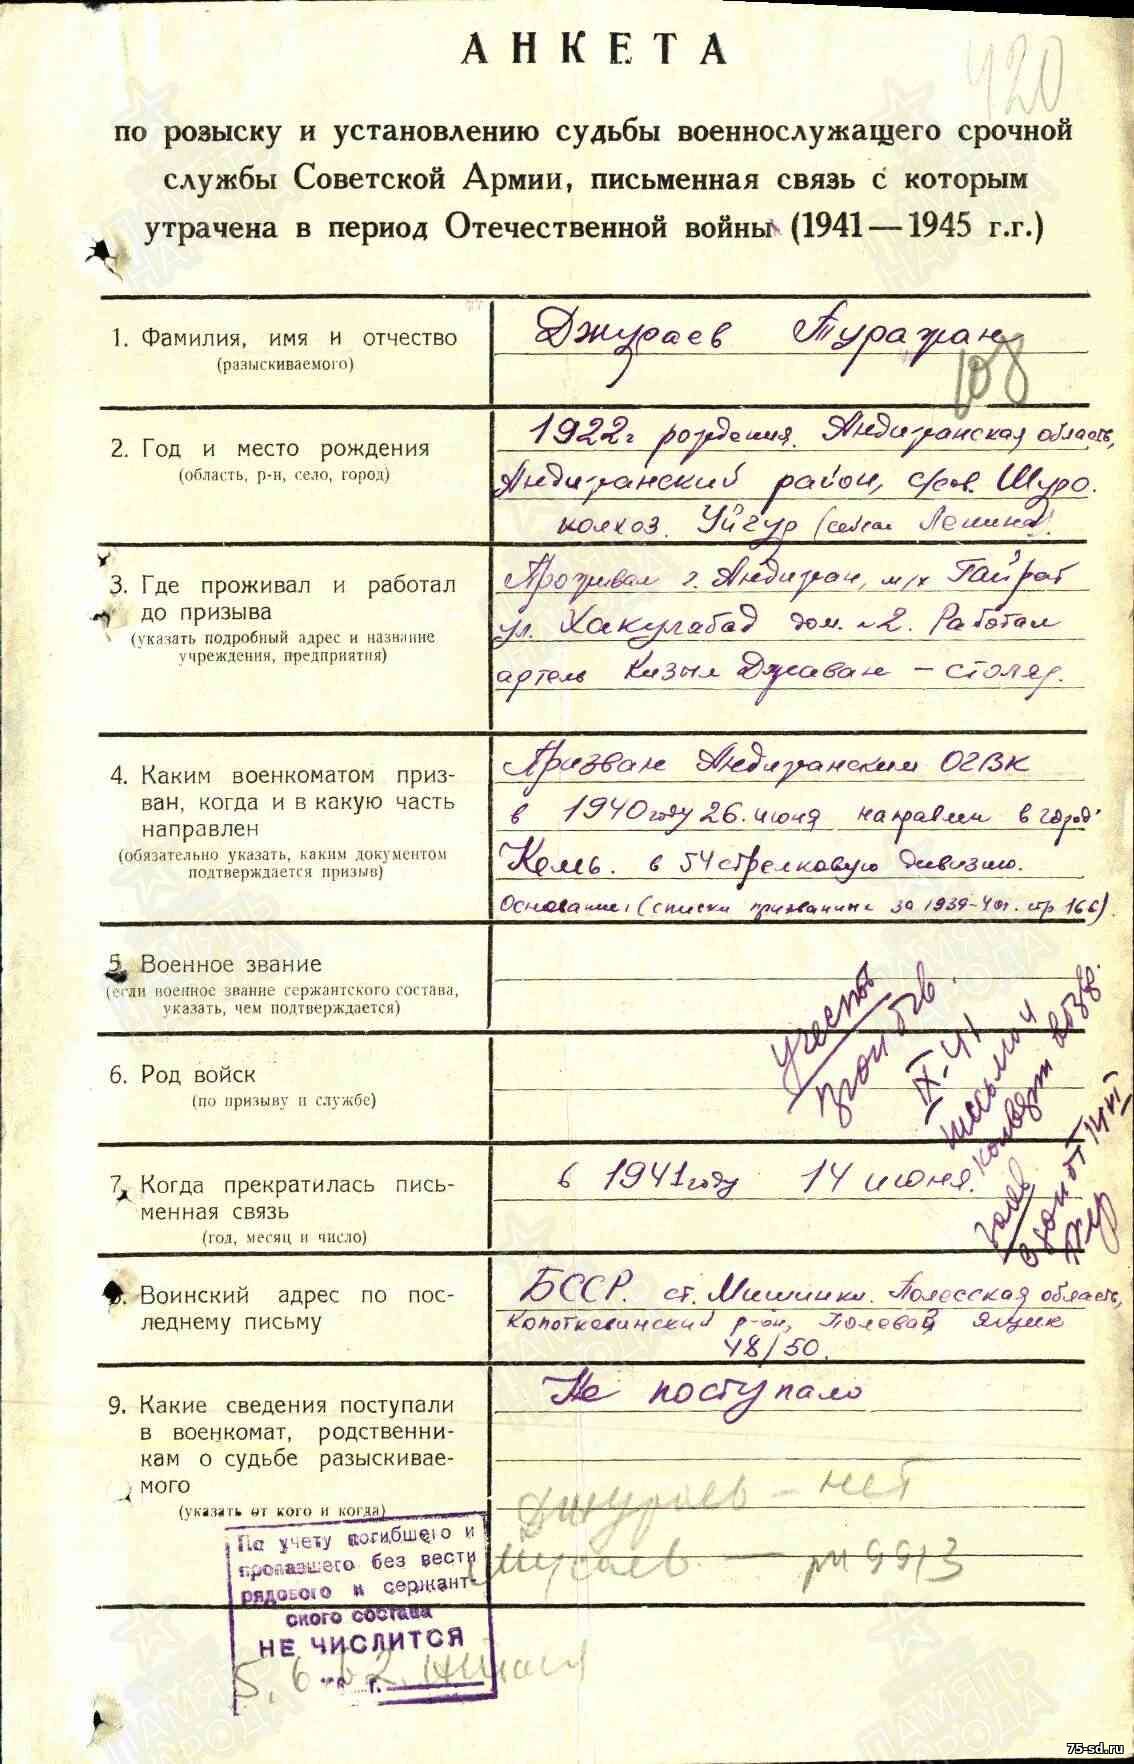 АНКЕТА
420
по розыску и установлению судьбы военнослужащего срочной
службы Советской Армии, письменная связь с которым
утрачена в период Отечественной войны (1941—1945 г.г.)
1. Фамилия, имя и отчество
(разыскиваемого)
Джураев Туражан
108
2. Год и место рождения
(область, р-н, село, город)
1922 г рождения. Андижанская область,
Андижанский район, с/сов. Шуро.
колхоз. Уйгур (сейчас Ленина).
3. Где проживал и работал
до призыва
(указать подробный адрес и название
учреждения, предприятия)
Проживал г. Андижан, м/х Гайрат
ул. Хакулабад дом. №2. Работал
артель Кизыл Джаван — столяр.
4. Каким военкоматом приз-
ван, когда и в какую часть
направлен
(обязательно указать, каким документом
подтверждается призыв)
Призван Андижанским ОГВК
в 1940 году 26. июня направлен в город
Кемь. в 54 стрелковую дивизию.
Основание: (списки призванных за 1939-40г. стр 166).
5. Военное звание
(если военное звание сержантского состава,
указать, чем подтверждается)
6. Род войск
(по призыву и службе)
IX-41
7. Когда прекратилась пись-
менная связь
(год, месяц и число)
в 1941 году 14 июня.
8. Воинский адрес по пос-
леднему письму
БССР. ст. Мишинки. Полесская область,
Копоткевинский р-он, Полевой ящик
48/50.
9. Какие сведения поступали
в военкомат, родственни-
кам о судьбе разыскивае-
мого
(указать от кого и когда)
Не поступало
Джураев — нет
Мусаев — 9913
По учету погибшего и
пропавшего без вести
рядового и сержант-
ского состава
НЕ ЧИСЛИТСЯ
г.
5.6.62.
ПАМЯТЬ НАРОДА
75-sd.ru